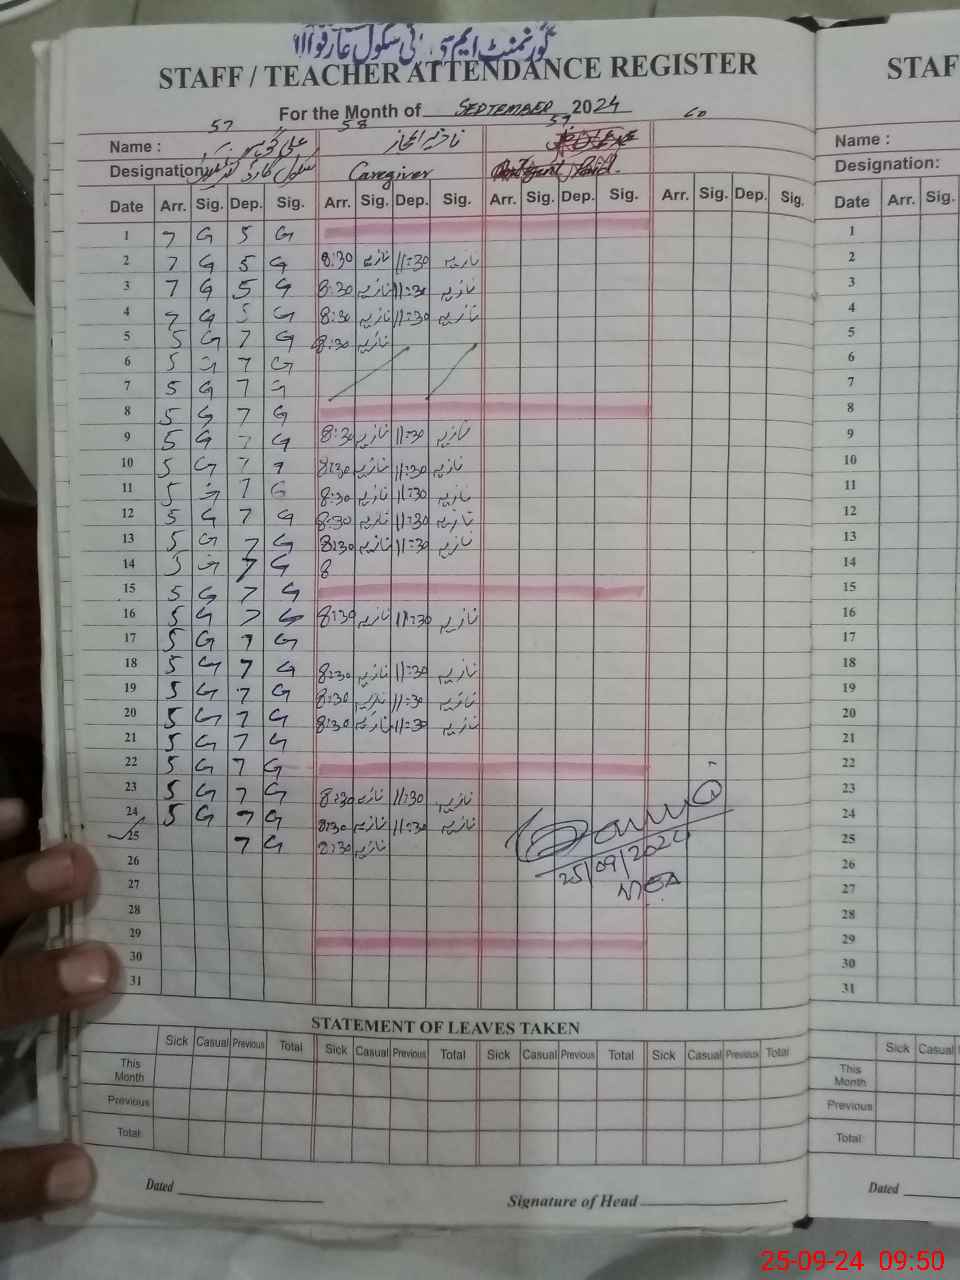 گورنمنٹ ایم سی
STAFF / TEACHER ATTENDANCE REGISTER
For the Month of SEPTEMBER 2024
57 58 59 60
Name : علی
Designation: Caregiver Paid.
Date Arr. Sig. Dep. Sig. Arr. Sig. Dep. Sig. Arr. Sig. Dep. Sig. Arr. Sig. Dep. Sig.
1 7 G 5 G
2 7 G 5 G 8:30 نازیہ 11:30 نازیہ
3 7 G 5 G 8:30 نازیہ 11:30 نازیہ
4 7 G 5 G 8:30 نازیہ 11:30 نازیہ
5 5 G 7 G 8:30 نازیہ
6 5 G 7 G
7 5 G 7 G
8 5 G 7 G
9 5 G 7 G 8:30 نازیہ 11:30 نازیہ
10 5 G 7 8:30 نازیہ 11:30 نازیہ
11 5 G 7 G 8:30 نازیہ 11:30 نازیہ
12 5 G 7 G 8:30 نازیہ 11:30 نازیہ
13 5 G 7 G 8:30 نازیہ 11:30 نازیہ
14 5 G 7 G 8
15 5 G 7 G
16 5 G 7 G 8:30 نازیہ 11:30 نازیہ
17 5 G 7 G
18 5 G 7 G 8:30 نازیہ 11:30 نازیہ
19 5 G 7 G 8:30 نازیہ 11:30 نازیہ
20 5 G 7 G 8:30 نازیہ 11:30 نازیہ
21 5 G 7 G
22 5 G 7 G
23 5 G 7 G 8:30 نازیہ 11:30 نازیہ
24 5 G 7 G 8:30 نازیہ 11:30 نازیہ
25 7 G 8:30 نازیہ
25/09/2024
MEA
26
27
28
29
30
31
STATEMENT OF LEAVES TAKEN
Sick Casual Previous Total Sick Casual Previous Total Sick Casual Previous Total Sick Casual Previous Total
This Month
Previous
Total:
Dated
Signature of Head
STAF
Name :
Designation:
Date Arr. Sig.
1
2
3
4
5
6
7
8
9
10
11
12
13
14
15
16
17
18
19
20
21
22
23
24
25
26
27
28
29
30
31
Sick Casual
This Month
Previous
Total:
Dated
25-09-24 09:50